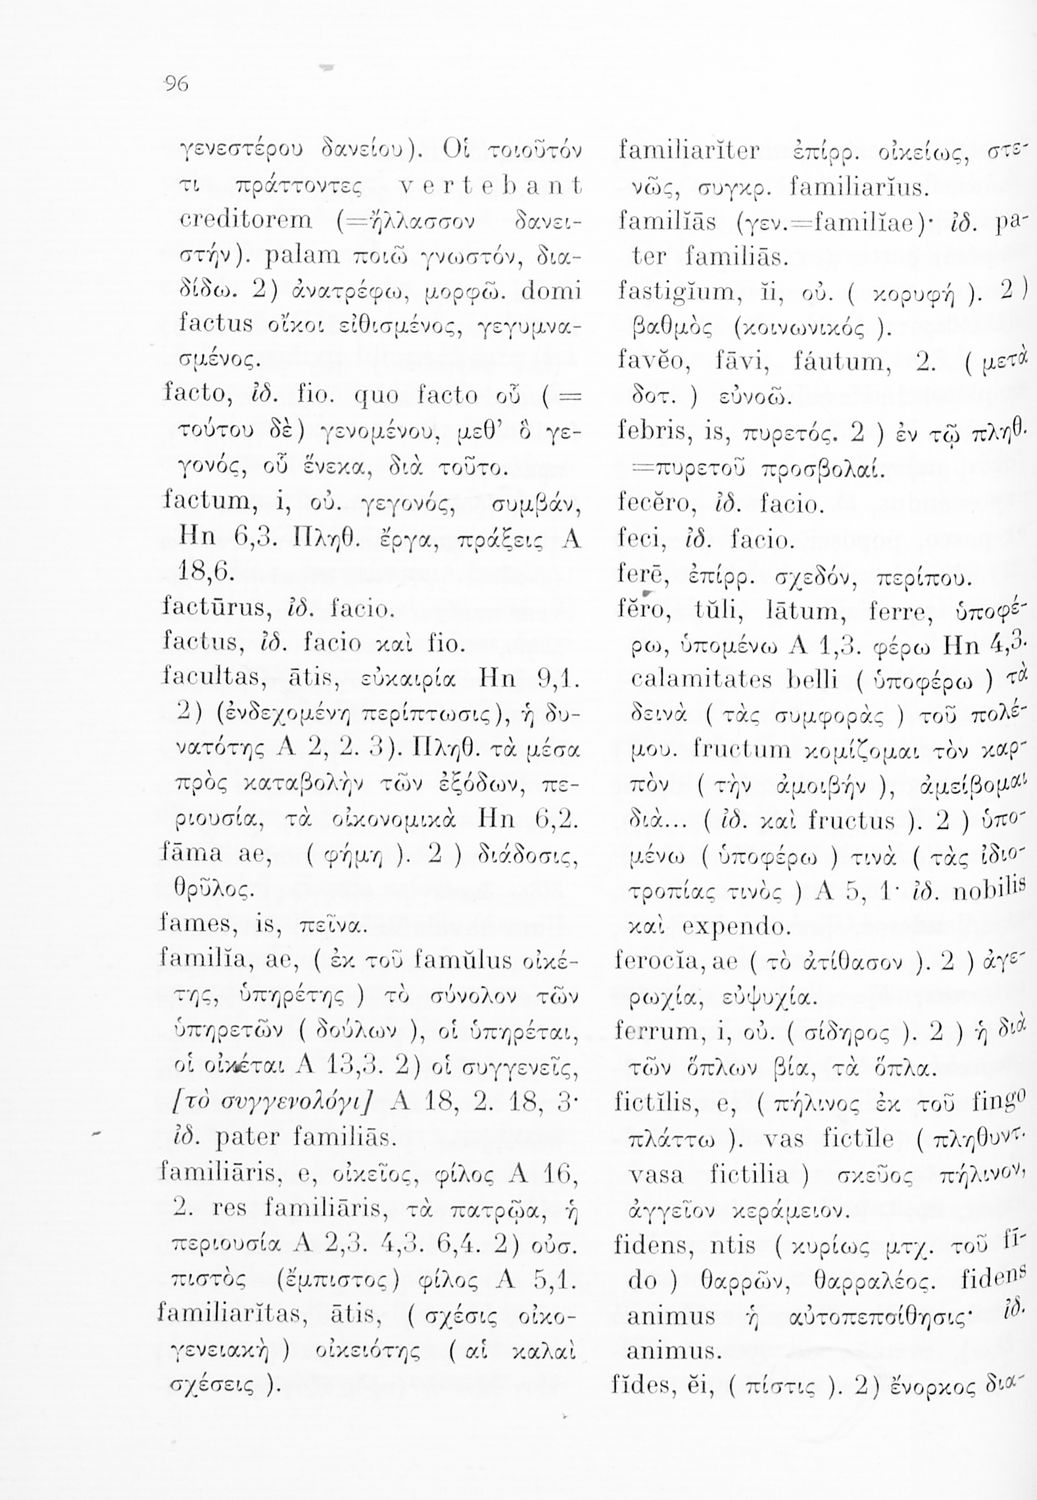 96
γενεστέρου δανείου). Οἱ τοιοῦτόν
τι πράττοντες vertebant
creditorem (=ἤλλασσον δανει-
στήν). palam ποιῶ γνωστόν, δια-
δίδω. 2) ἀνατρέφω, μορφῶ. domi
factus οἴκοι εἰθισμένος, γεγυμνα-
σμένος.
facto, ἰδ. fio. quo facto οὗ ( =
τούτου δὲ) γενομένου, μεθ’ ὃ γε-
γονός, οὗ ἕνεκα, διὰ τοῦτο.
factum, i, οὐ. γεγονός, συμβάν,
Hn 6,3. Πληθ. ἔργα, πράξεις A
18,6.
factūrus, ἰδ. facio.
factus, ἰδ. facio καὶ fio.
facultas, ātis, εὐκαιρία Hn 9,1.
2) (ἐνδεχομένη περίπτωσις), ἡ δυ-
νατότης A 2, 2. 3). Πληθ. τὰ μέσα
πρὸς καταβολὴν τῶν ἐξόδων, πε-
ριουσία, τὰ οἰκονομικὰ Hn 6,2.
fāma ae, ( φήμη ). 2 ) διάδοσις,
θρῦλος.
fames, is, πεῖνα.
familĭa, ae, ( ἐκ τοῦ famŭlus οἰκέ-
της, ὑπηρέτης ) τὸ σύνολον τῶν
ὑπηρετῶν ( δούλων ), οἱ ὑπηρέται,
οἱ οἰκέται A 13,3. 2) οἱ συγγενεῖς,
[τὸ συγγενολόγι] A 18, 2. 18, 3·
ἰδ. pater familiās.
familiāris, e, οἰκεῖος, φίλος A 16,
2. res familiāris, τὰ πατρῷα, ἡ
περιουσία A 2,3. 4,3. 6,4. 2) οὐσ.
πιστὸς (ἔμπιστος) φίλος A 5,1.
familiarĭtas, ātis, ( σχέσις οἰκο-
γενειακὴ ) οἰκειότης ( αἱ καλαὶ
σχέσεις ).
familiarĭter ἐπίρρ. οἰκείως, στε-
νῶς, συγκρ. familiarĭus.
familĭās (γεν.=familĭae)· ἰδ. pa-
ter familiās.
fastigĭum, ĭi, οὐ. ( κορυφή ). 2 )
βαθμὸς (κοινωνικός ).
favĕo, fāvi, fáutum, 2. ( μετὰ
δοτ. ) εὐνοῶ.
febris, is, πυρετός. 2 ) ἐν τῷ πληθ.
=πυρετοῦ προσβολαί.
fecĕro, ἰδ. facio.
feci, ἰδ. facio.
ferē, ἐπίρρ. σχεδόν, περίπου.
fĕro, tŭli, lātum, ferre, ὑποφέ-
ρω, ὑπομένω A 1,3. φέρω Hn 4,3.
calamitates belli ( ὑποφέρω ) τὰ
δεινὰ ( τὰς συμφορὰς ) τοῦ πολέ-
μου. fructum κομίζομαι τὸν καρ-
πὸν ( τὴν ἀμοιβήν ), ἀμείβομαι
διὰ... ( ἰδ. καὶ fructus ). 2 ) ὑπο-
μένω ( ὑποφέρω ) τινὰ ( τὰς ἰδιο-
τροπίας τινὸς ) A 5, 1· ἰδ. nobilis
καὶ expendo.
ferocĭa, ae ( τὸ ἀτίθασον ). 2 ) ἀγε-
ρωχία, εὐψυχία.
ferrum, i, οὐ. ( σίδηρος ). 2 ) ἡ διὰ
τῶν ὅπλων βία, τὰ ὅπλα.
fictĭlis, e, ( πήλινος ἐκ τοῦ fingo
πλάττω ). vas fictĭle ( πληθυντ.
vasa fictilia ) σκεῦος πήλινον,
ἀγγεῖον κεράμειον.
fidens, ntis ( κυρίως μτχ. τοῦ fī-
do ) θαρρῶν, θαρραλέος. fidens
animus ἡ αὐτοπεποίθησις· ἰδ.
animus.
fĭdes, ĕi, ( πίστις ). 2) ἔνορκος δια-